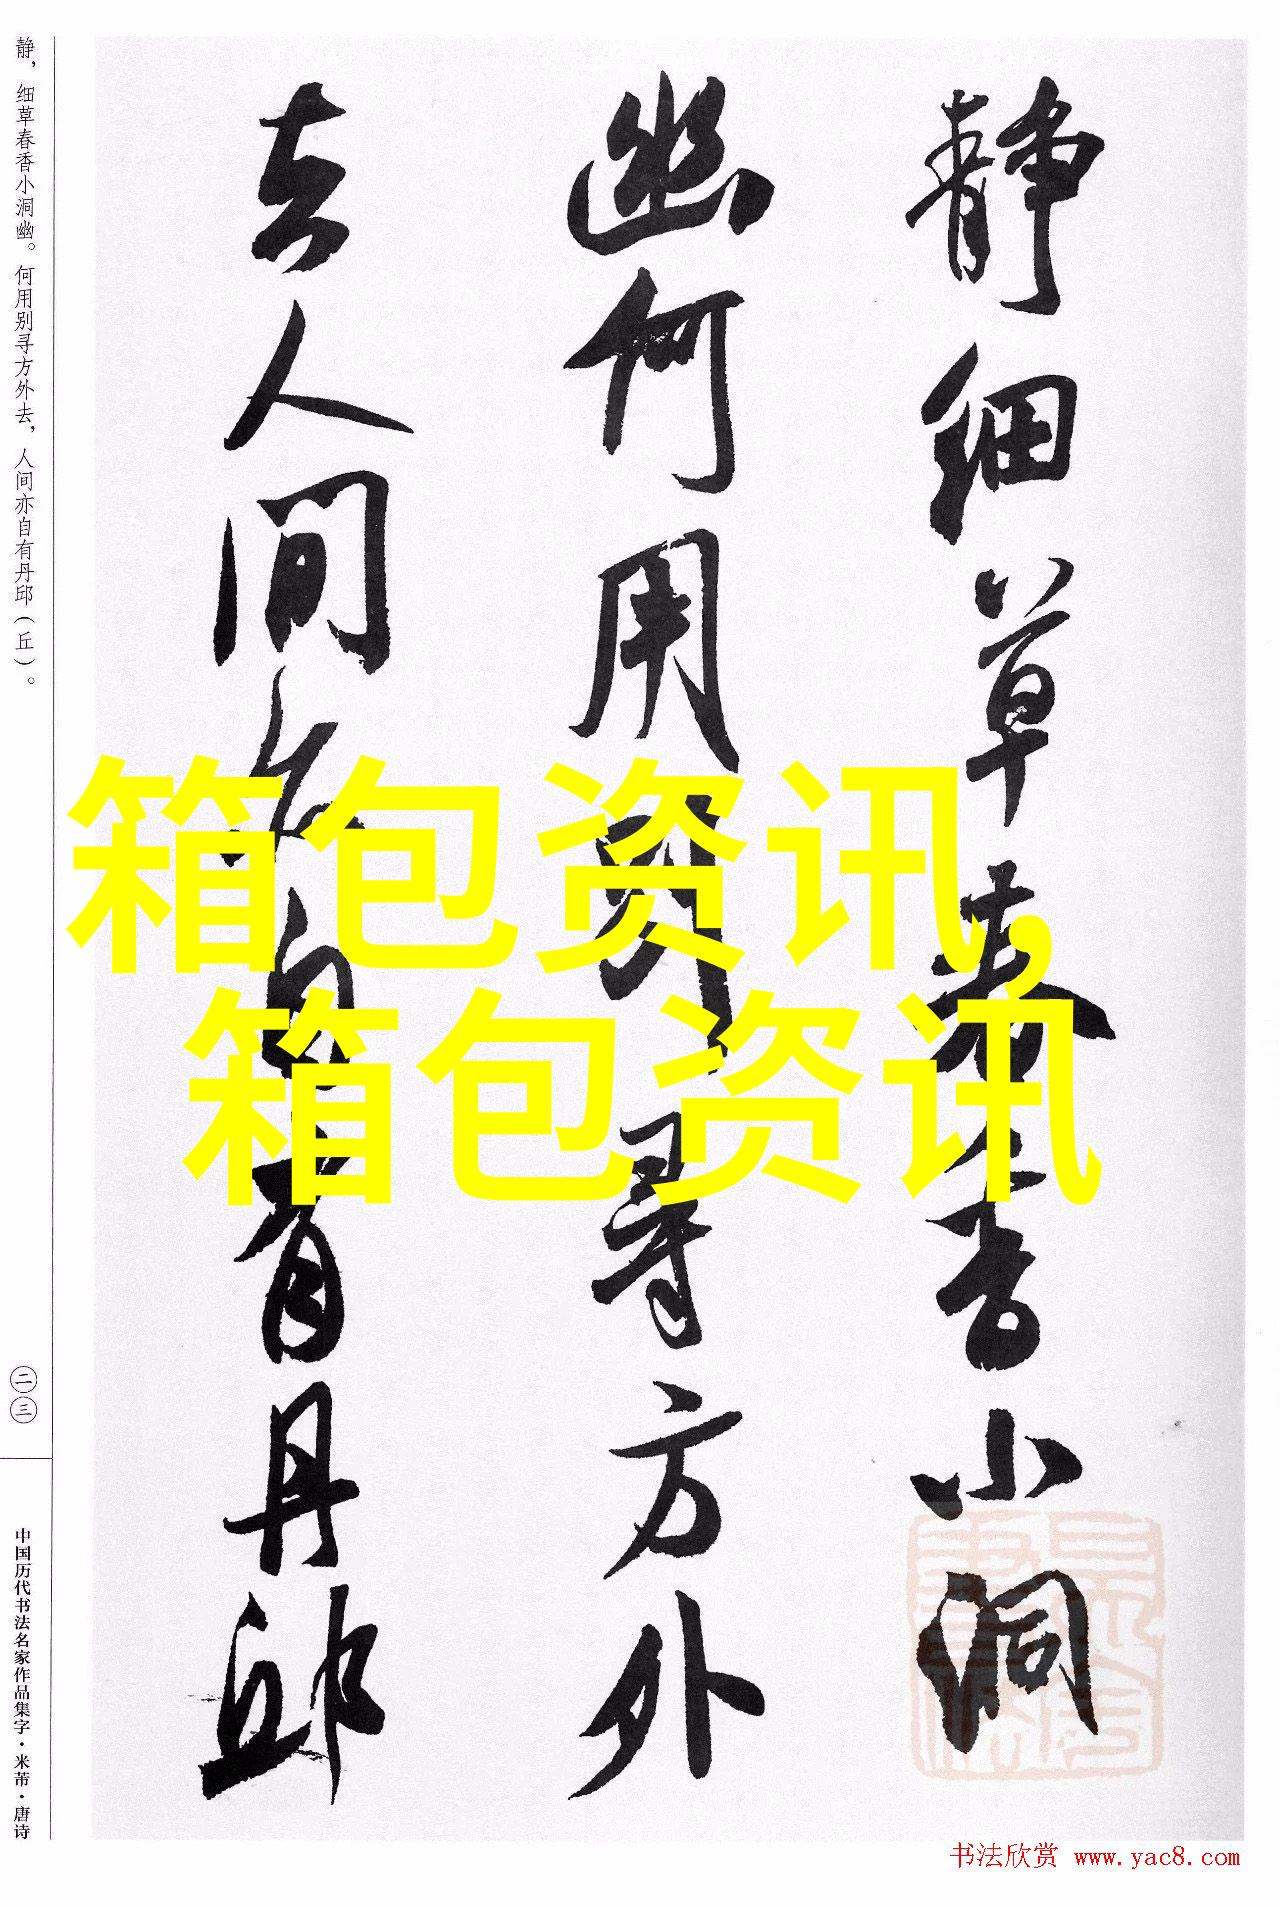 静细草春香小洞
幽何用别寻方外
去人间亦自有丹邱
静，细草春香小洞幽。何用别寻方外去，人间亦自有丹邱（丘）。
二三
中国历代书法名家作品集字·米芾·唐诗
箱包资讯,
箱包资讯
书法欣赏 www.yac8.com